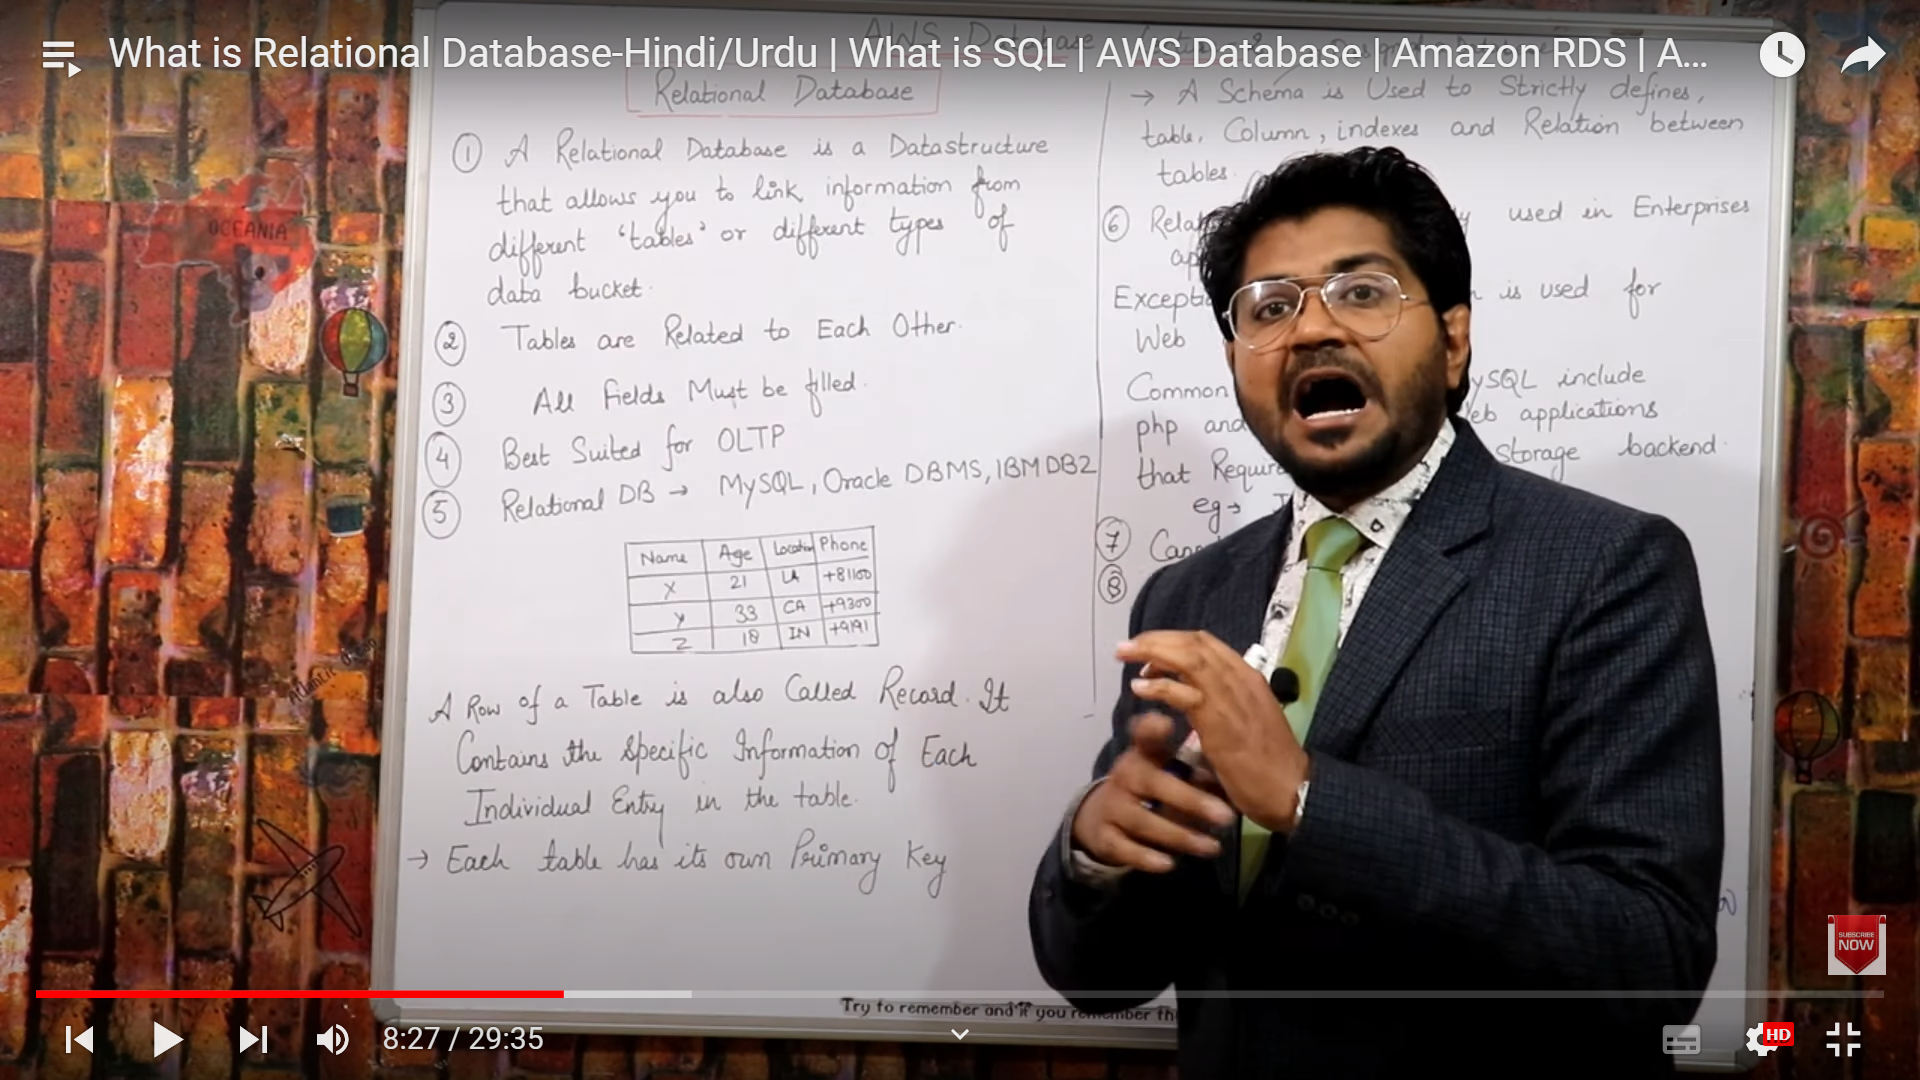 What is Relational Database-Hindi/Urdu | What is SQL | AWS Database | Amazon RDS | A...
AWS Database
Relational Database
① A Relational Database is a Datastructure
that allows you to link information from
different 'tables' or different types of
data bucket.
② Tables are Related to Each Other.
③ All Fields Must be filled.
④ Best Suited for OLTP
⑤ Relational DB → MySQL, Oracle DBMS, IBM DB2
Name Age Location Phone
X 21 LA +81100
Y 33 CA +9300
Z 18 IN +9191
A Row of a Table is also Called Record. It
Contains the Specific Information of Each
Individual Entry in the table.
→ Each table has its own Primary Key
→ A Schema is Used to Strictly defines,
table, Column, indexes and Relation between
tables.
⑥ used in Enterprises
is used for
Web
Common MySQL include
php and Web applications
that Require Storage backend.
eg →
⑦
⑧
OCEANIA
Atlantic Ocean
SUBSCRIBE
NOW
Try to remember and if you remember
8:27 / 29:35
HD